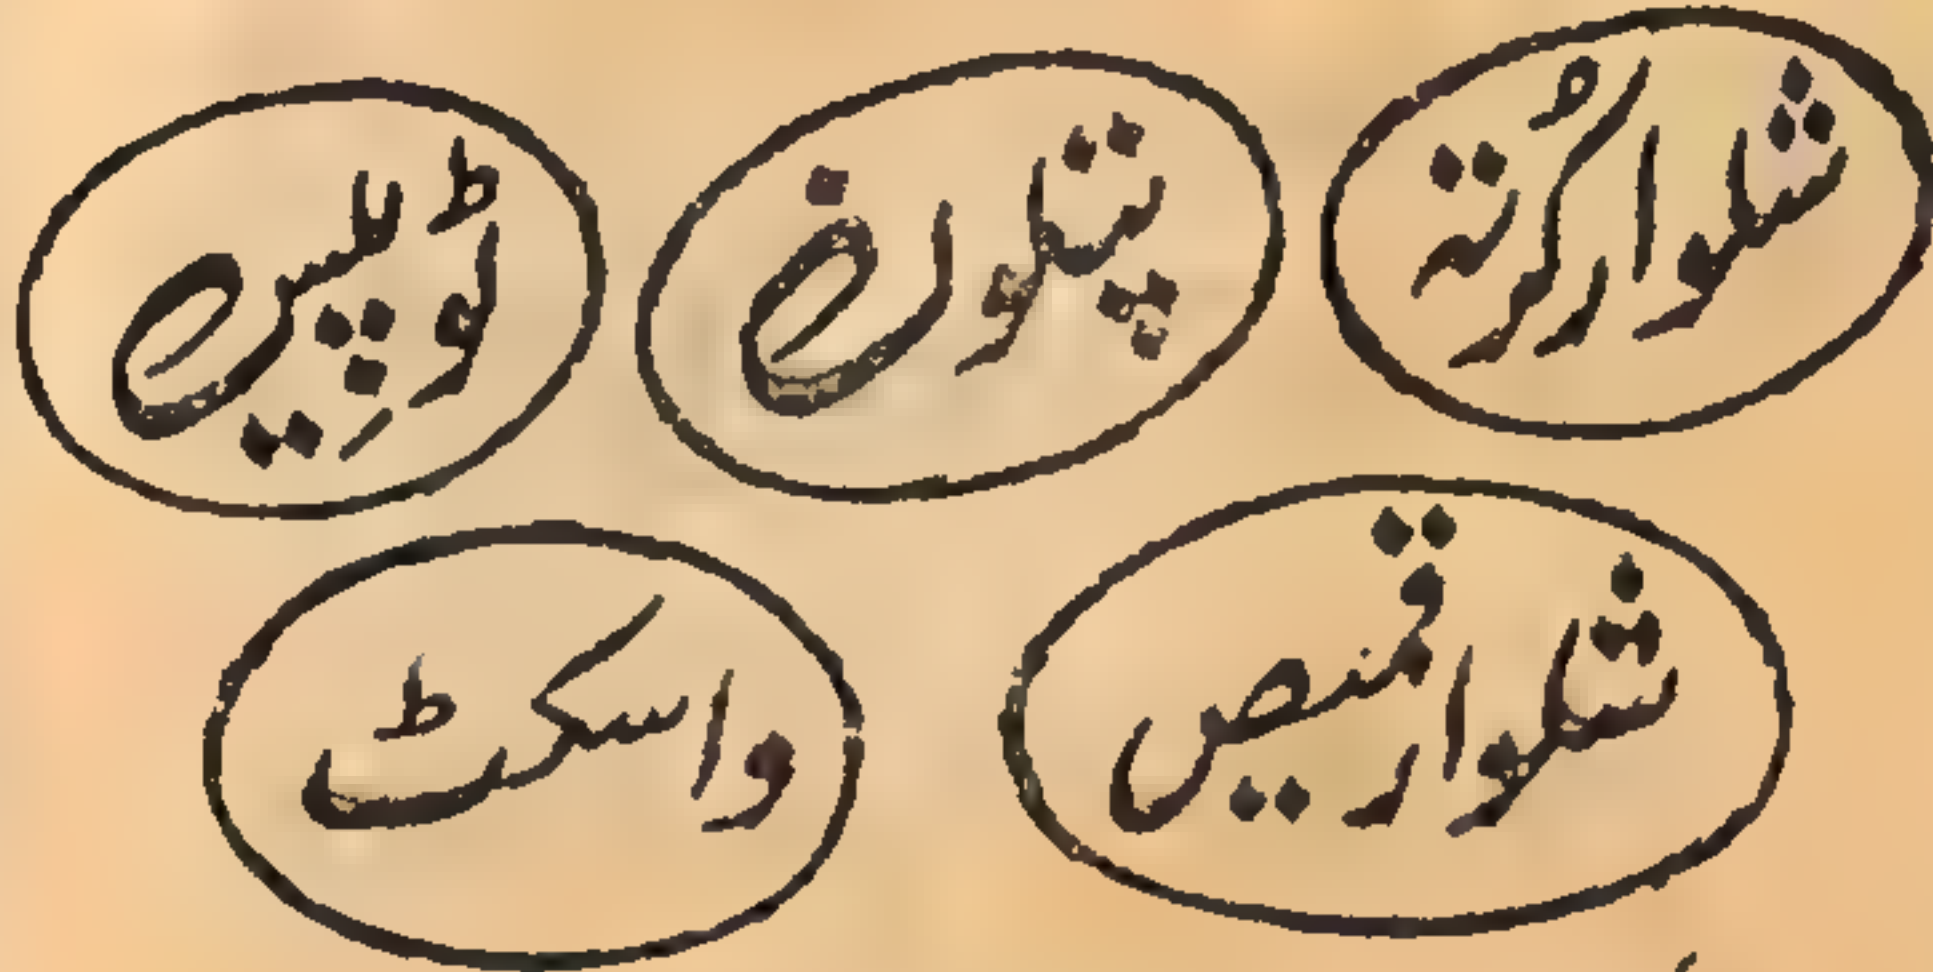 شلوار کُرتہ
پتلون
ٹو پیس
شلوار قمیص
واسکٹ